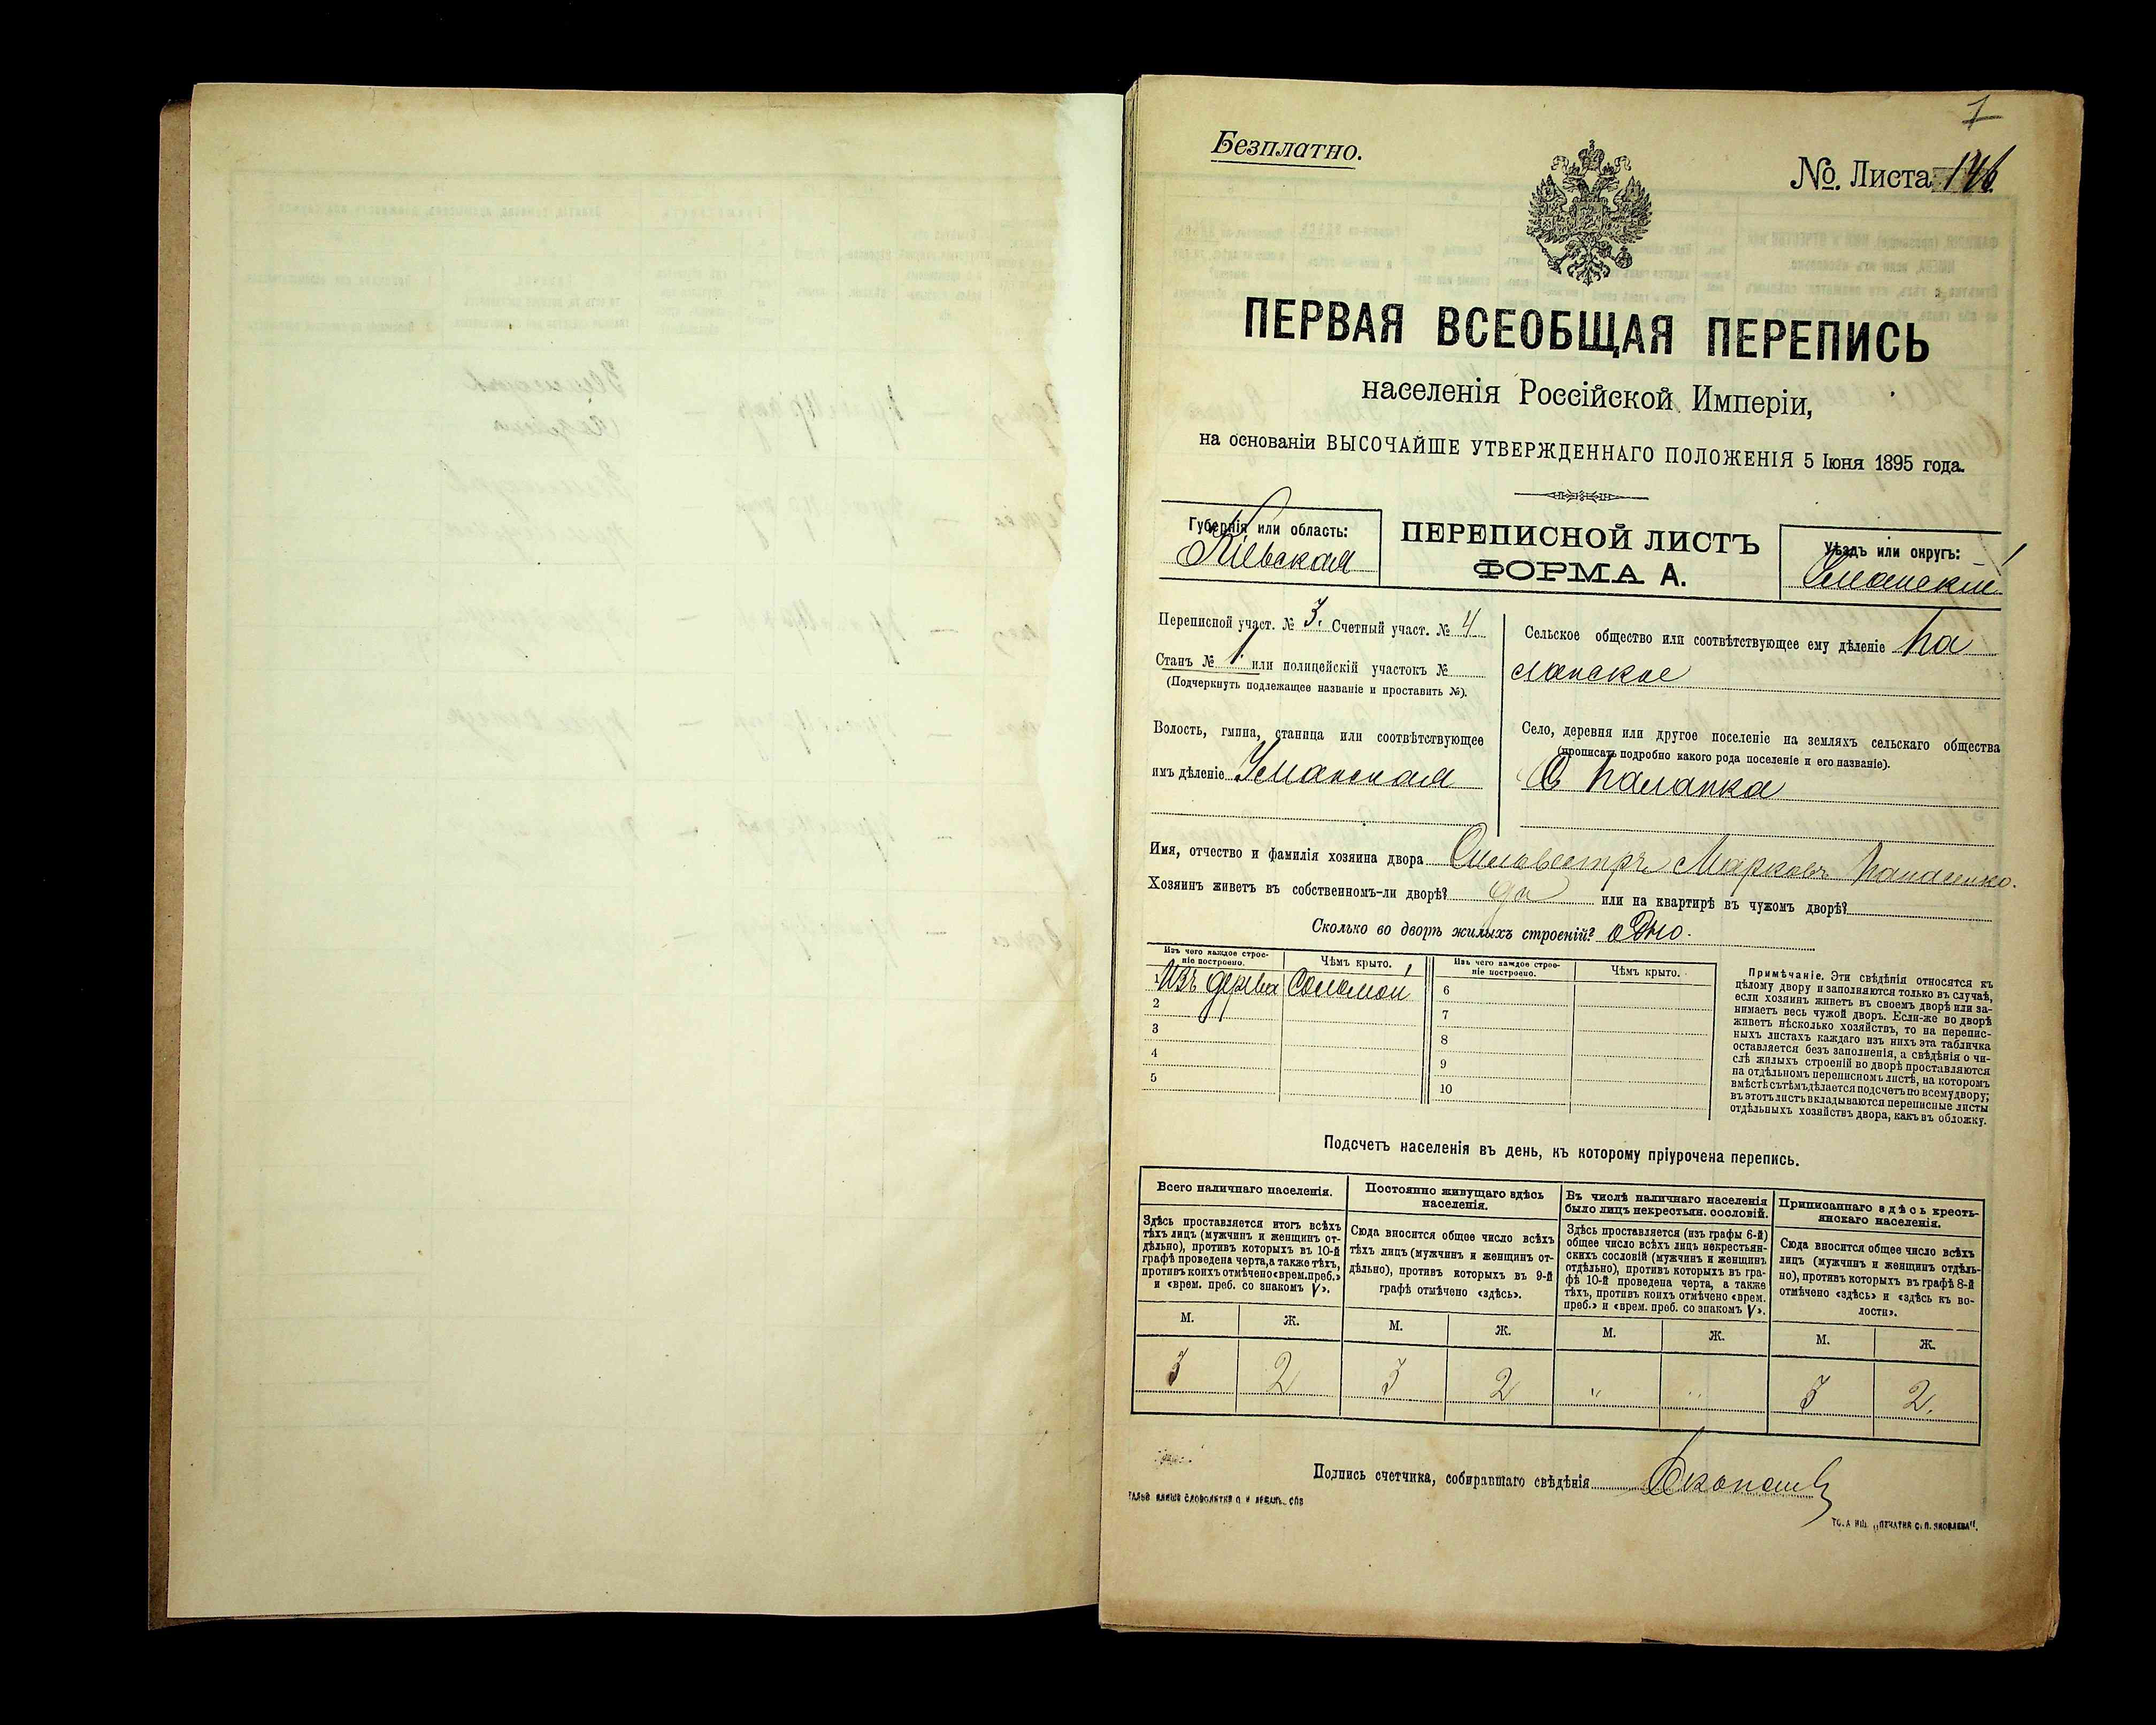 1
Безплатно.
№. Листа 146.
ПЕРВАЯ ВСЕОБЩАЯ ПЕРЕПИСЬ
населенія Россійской Имперіи,
на основаніи ВЫСОЧАЙШЕ УТВЕРЖДЕННАГО ПОЛОЖЕНІЯ 5 Іюня 1895 года.
Губернія или область:
Кіевская
ПЕРЕПИСНОЙ ЛИСТЪ
ФОРМА А.
Уѣздъ или округъ:
Уманскій
Переписной участ. № 3. Счетный участ. № 4
Станъ № 1 или полицейскій участокъ №
(Подчеркнуть подлежащее названіе и проставить №).
Волость, гмина, станица или соотвѣтствующее
имъ дѣленіе Уманская
Сельское общество или соотвѣтствующее ему дѣленіе Па
ланское
Село, деревня или другое поселеніе на земляхъ сельскаго общества
(прописать подробно какого рода поселеніе и его названіе).
С. Паланка
Имя, отчество и фамилія хозяина двора Сильвестръ Марковъ Панасенко.
Хозяинъ живетъ въ собственномъ-ли дворѣ? да или на квартирѣ въ чужомъ дворѣ?
Сколько во дворѣ жилыхъ строеній? одно.
Изъ чего каждое строе-
ніе построено.
Чѣмъ крыто.
Изъ чего каждое строе-
ніе построено.
Чѣмъ крыто.
1 Изъ дерева Соломой 6
2 7
3 8
4 9
5 10
Примѣчаніе. Эти свѣдѣнія относятся къ
цѣлому двору и заполняются только въ случаѣ,
если хозяинъ живетъ въ своемъ дворѣ или за-
нимаетъ весь чужой дворъ. Если-же во дворѣ
живетъ нѣсколько хозяйствъ, то на перепис-
ныхъ листахъ каждаго изъ нихъ эта табличка
оставляется безъ заполненія, а свѣдѣнія о чи-
слѣ жилыхъ строеній во дворѣ проставляются
на отдѣльномъ переписномъ листѣ, на которомъ
вмѣстѣ съ тѣмъ дѣлается подсчетъ по всему двору;
въ этотъ листъ вкладываются переписные листы
отдѣльныхъ хозяйствъ двора, какъ въ обложку.
Подсчетъ населенія въ день, къ которому пріурочена перепись.
Всего наличнаго населенія.
Здѣсь проставляется итогъ всѣхъ
тѣхъ лицъ (мужчинъ и женщинъ от-
дѣльно), противъ которыхъ въ 10-й
графѣ проведена черта, а также тѣхъ,
противъ коихъ отмѣчено «врем. преб.»
и «врем. преб. со знакомъ V».
Постоянно живущаго здѣсь
населенія.
Сюда вносится общее число всѣхъ
тѣхъ лицъ (мужчинъ и женщинъ от-
дѣльно), противъ которыхъ въ 9-й
графѣ отмѣчено «здѣсь».
Въ числѣ наличнаго населенія
было лицъ некрестьян. сословій.
Здѣсь проставляется (изъ графы 6-й)
общее число всѣхъ лицъ некрестьян-
скихъ сословій (мужчинъ и женщинъ
отдѣльно), противъ которыхъ въ гра-
фѣ 10-й проведена черта, а также
тѣхъ, противъ коихъ отмѣчено «врем.
преб.» и «врем. преб. со знакомъ V».
Приписаннаго здѣсь кресть-
янскаго населенія.
Сюда вносится общее число всѣхъ
лицъ (мужчинъ и женщинъ отдѣль-
но), противъ которыхъ въ графѣ 8-й
отмѣчено «здѣсь» и «здѣсь къ во-
лости».
М. Ж. М. Ж. М. Ж. М. Ж.
3 2 3 2 " " 3 2.
Подпись счетчика, собиравшаго свѣдѣнія